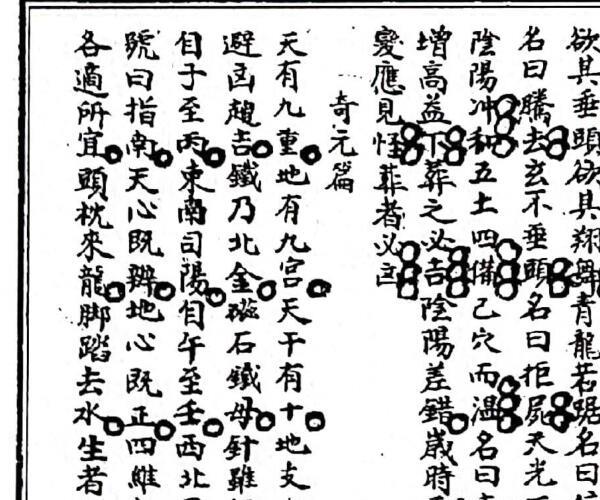 欲其垂頭欲其翔舞青龍若踞名曰
名曰騰去玄不垂頭名曰拒屍天光
陰陽冲和五土四備已穴而溫名曰
增高益下葬之必吉陰陽差錯歲時
變應見怪葬者必凶
奇元篇
天有九重地有九宫天干有十地支
避凶趨吉鐵乃北金磁石鐵母針雖
自子至丙東南司陽自午至壬西北
號曰指南天心既辨地心既正四維
各適所宜頭枕來龍脚踏去水生者